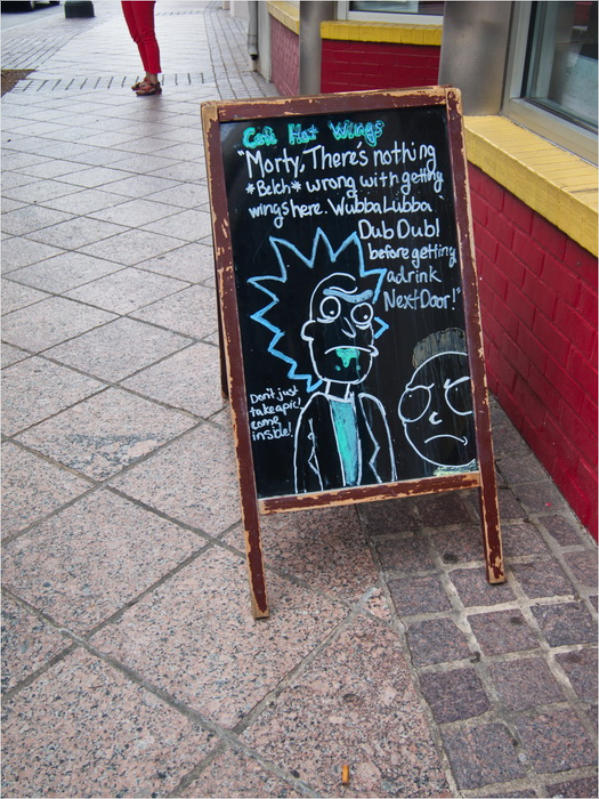 Cali Hot Wings
"Morty, There's nothing
*Belch* wrong with getting
wings here. Wubba Lubba
Dub Dub!
before getting
a drink
Next Door!"
Don't just
take a pic!
come
inside!